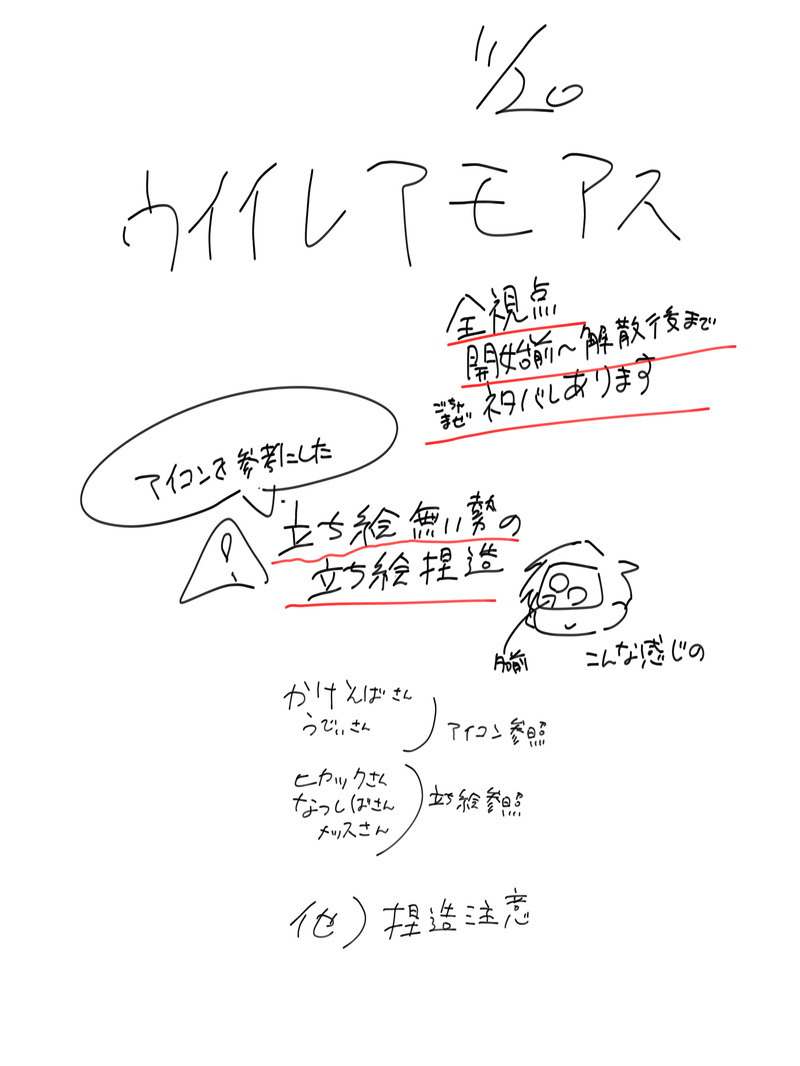 11/20
ウイイレアモアス
全視点
開始前〜解散後まで
ごちゃまぜ ネタバレあります
アイコンを参考にした
!
立ち絵無い勢の
立ち絵捏造
こんな感じの
かけえばさん
うでぃさん
アイコン参照
ヒカックさん
なつしばさん
メッスさん
立ち絵参照
他) 捏造注意